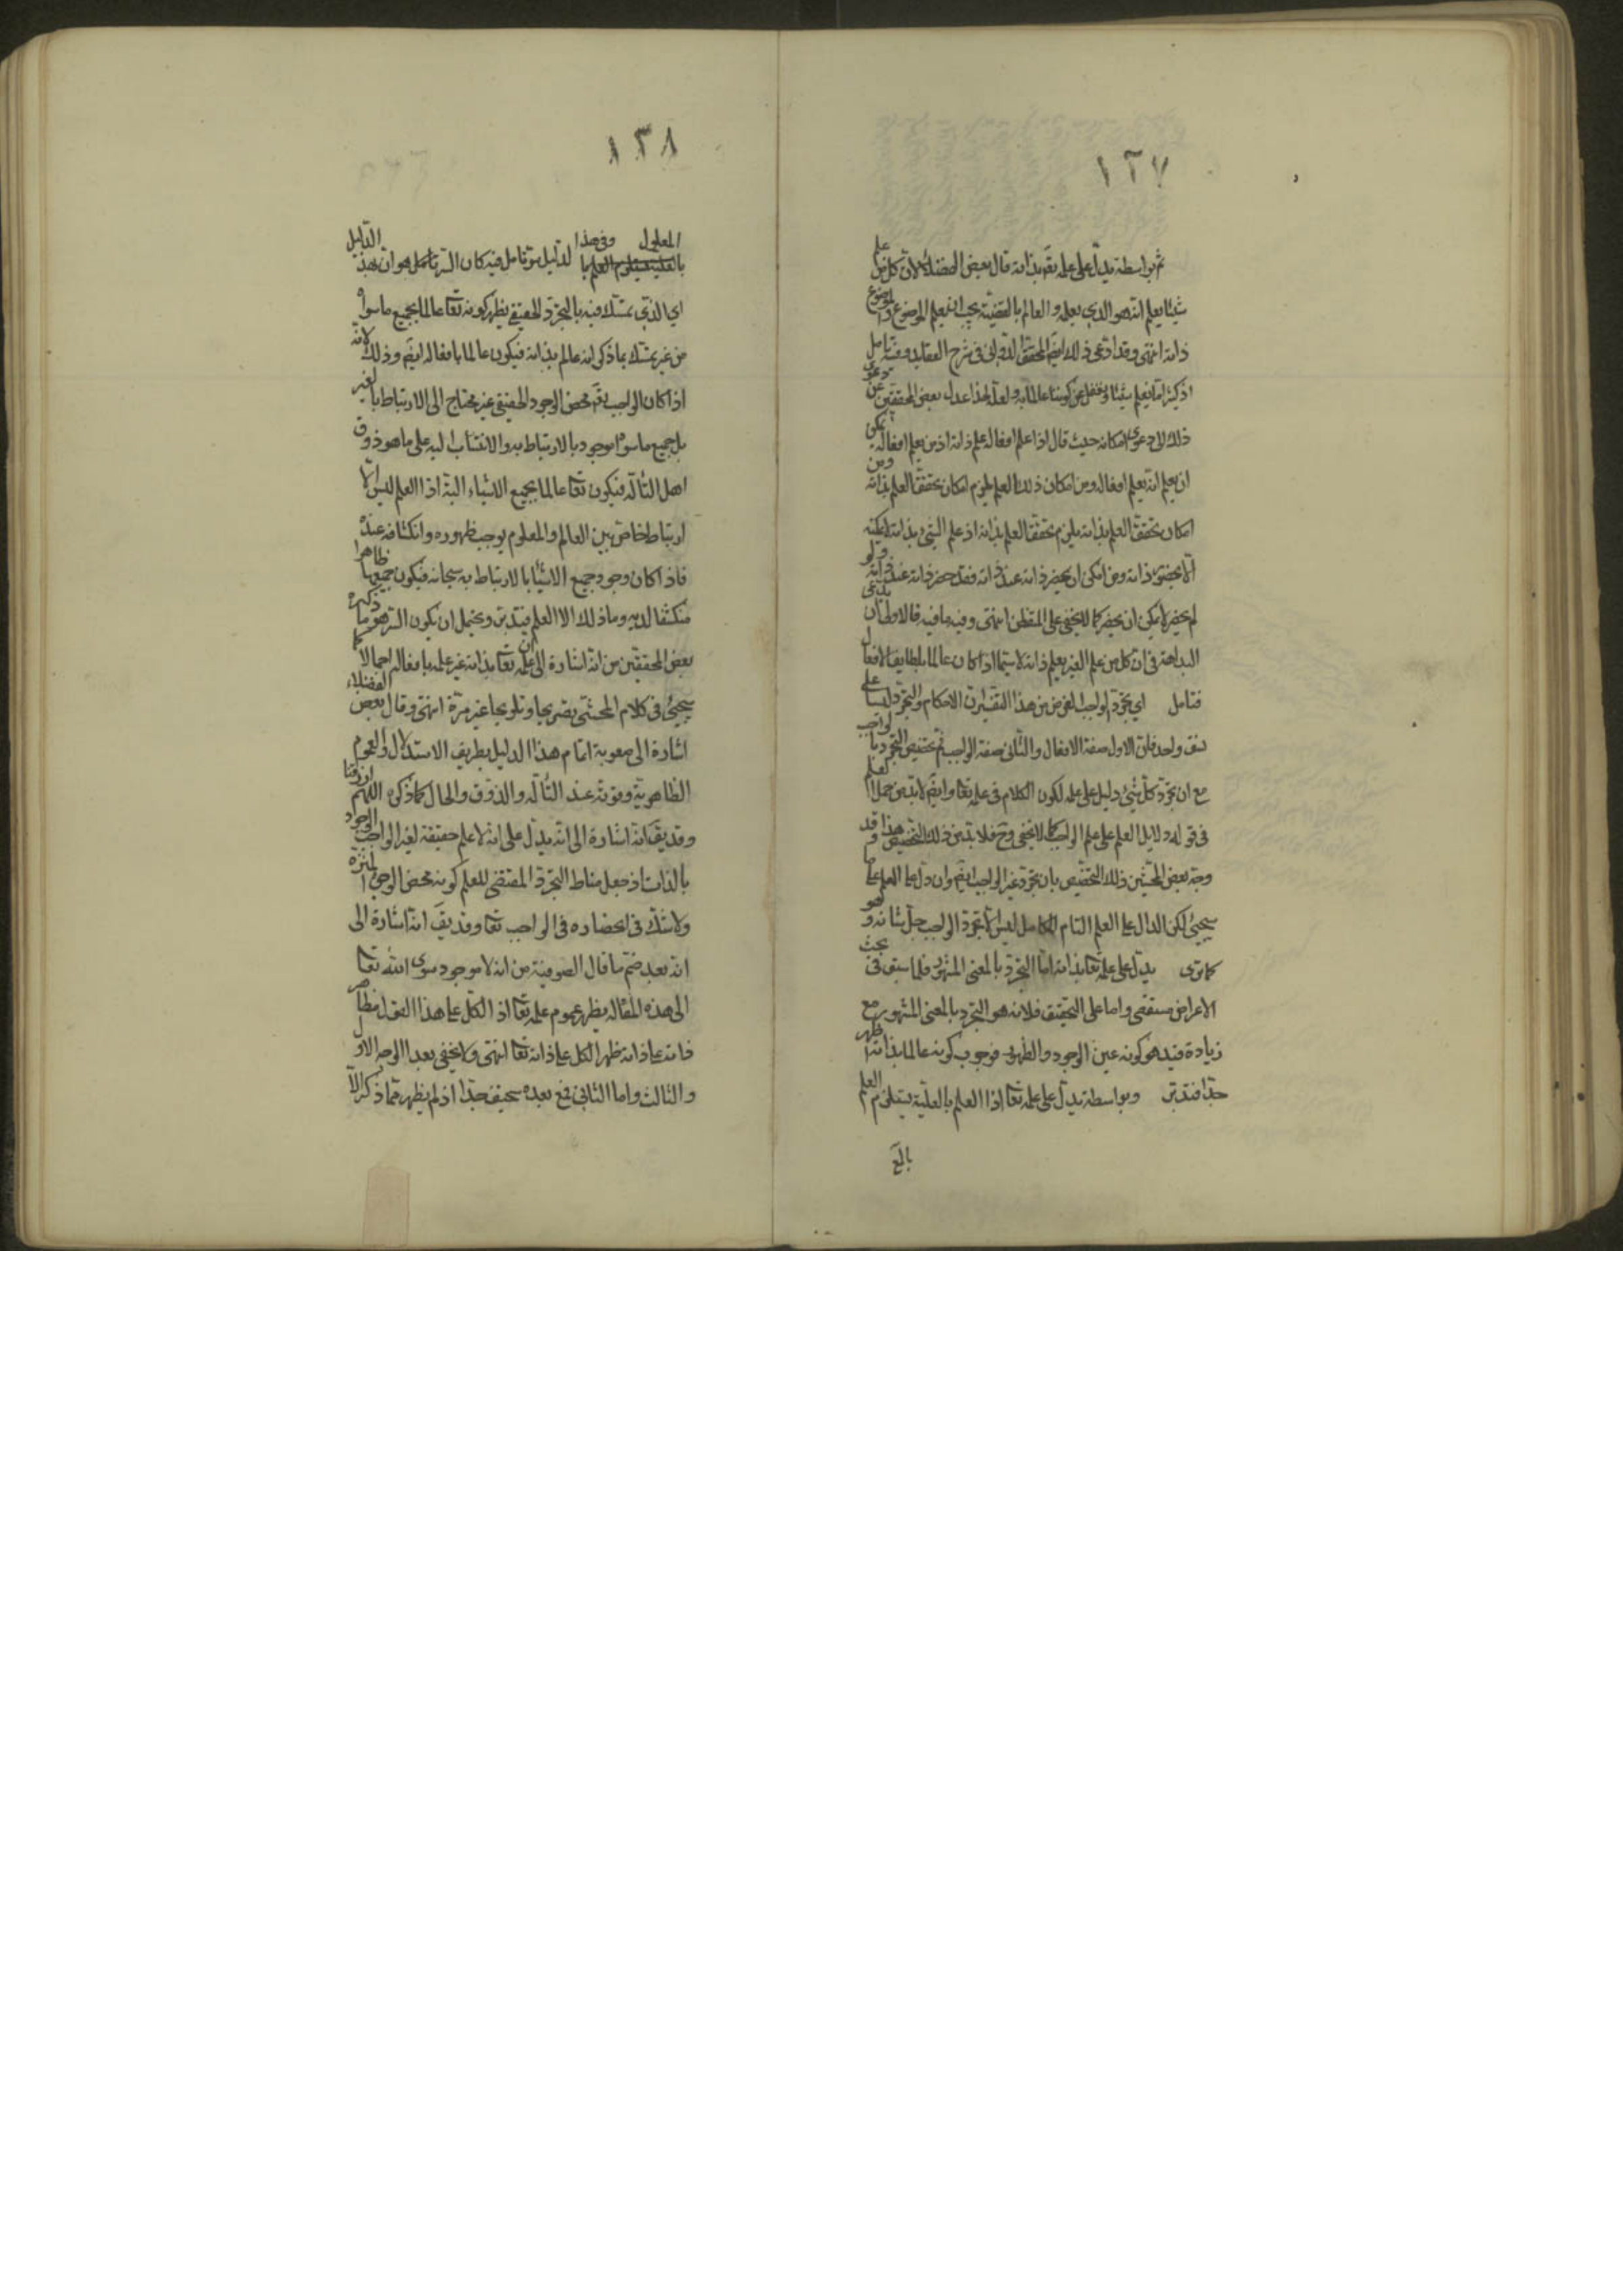 ١٢٧
ثم بواسطته يدل على علمه تع بذاته قال بعض الفضلاء لان كل من علم
شيئا يعلم انه هو الذي يعلمه والعالم بالقضية يجب ان يعلم الموضوع والموضوع
ذاته انتهى وقد ادعى ذلك ايضا المحقق الدواني في شرح العقايد وفيه تامل
اذ كثيرا ما نعلم شيئا ونغفل عن كوننا عالما به ولعل لهذا عدل بعض المحققين عن دعوى
ذلك الى دعوى امكانه حيث قال اذا علم افعاله علم ذاته اذ من يعلم افعاله يمكن
ان يعلم انه يعلم افعاله ومن امكان ذلك العلم يلزم امكان تحقق العلم بذاته ومن
امكان تحقق العلم بذاته يلزم تحقق العلم بذاته اذ علم الشيء بذاته
الا بحضور ذاته ومن امكن ان يحضر ذاته عند ذاته فقد حضر ذاته عند ذاته ولو
لم يحضر لم يمكن ان يحضر كما لا يخفى على المتفطن انتهى وفيه ما فيه فالاولى ان يدعى
البداهة في ان كل من علم الغير يعلم ذاته لا سيما اذا كان عالما بلطايف الافعال
فتامل اي تجرد الواجب الغرض من هذا التفسير ان الاحكام والتجرد ليسا على
نسق واحد فان الاول صفة الافعال والثاني صفة الواجب ثم تخصيص التجرد بالواجب
مع ان تجرد كل شيء دليل على علمه لكون الكلام في علمه تعا وايضا لا بد من حمل العلم
في قوله دلايل العلم على علم الواجب كما لا يخفى وح فلا بد من ذلك التخصيص هذا وقد
وجه بعض المحشين ذلك التخصيص بان تجرد غير الواجب ايضا وان دل على العلم على ما
سيجئ لكن الدال على العلم التام الكامل ليس الا تجرد الواجب جل شانه وهو
كما ترى يدل على علمه تعا بذاته اما التجرد بالمعنى المشهور فلما سبق في بحث
الاعراض مستقصى واما على التحقيق فلانه هو التجرد بالمعنى المشهور مع
زيادة قيد هو كونه عين الوجود والظهور فوجوب كونه عالما بذاته اظهر
جدا فتدبر وبواسطته يدل على علمه تعا اذ العلم بالعلية يستلزم العلم
بالمع
١٢٨
المعلول وفي هذا الدليل
لدليل سو تامل فيه كان السر تامل هو ان بهذا
اي الذي تمسك فيه بالتجرد الحقيقي يظهر كونه تعا عالما بجميع ما سواه
من غير تمسك بما ذكر انه عالم بذاته فيكون عالما بافعاله ايضا وذلك لانه
اذا كان الواجب تع محض الوجود الحقيقي غير محتاج الى الارتباط بالغير
بل جميع ما سواه موجود بالارتباط به والانتساب اليه على ما هو ذوق
اهل التاله فيكون تعا عالما بجميع الاشياء البتة اذ العلم ليس الا
ارتباط خاص بين العالم والمعلوم يوجب ظهوره وانكشافه عنده
فاذا كان وجود جميع الاشيا بالارتباط به سبحانه فيكون جميعها ظاهرا
منكشفا لديه وما ذلك الا العلم فتدبر ويحتمل ان يكون السر هو ما ذكره
بعض المحققين من انه اشارة الى ان علمه تعا بذاته غير علمه بافعاله اجمالا كما
سيجئ في كلام المحشى تصريحا وتلويحا غير مرة انتهى وقال بعض الفضلاء
اشارة الى صعوبة اتمام هذا الدليل بطريق الاستدلال والعلوم
الظاهرية وقوته عند التاله والذوق والحال كما ذكره اللهم ارزقنا
وقد يق انه اشارة الى انه يدل على انه لا علم حقيقة لغير الواجب الوجود
بالذات اذ جعل مناط التجرد المقتضى للعلم كونه محض الوجود المنزه
ولا شك في انحصاره في الواجب تعا وقد يق انه اشارة الى
انه بعد ضم ما قال الصوفية من انه لا موجود سوى الله تعا
الى هذه المقالة يظهر عموم علمه تعا اذ الكل على هذا القول مظاهر
ذاته على ذاته ظهر الكل على ذاته تعا انتهى ولا يخفى بعد الوجه الاول
والثالث واما الثاني فمع بعده سخيف جدا اذ لم يظهر مما ذكر الا